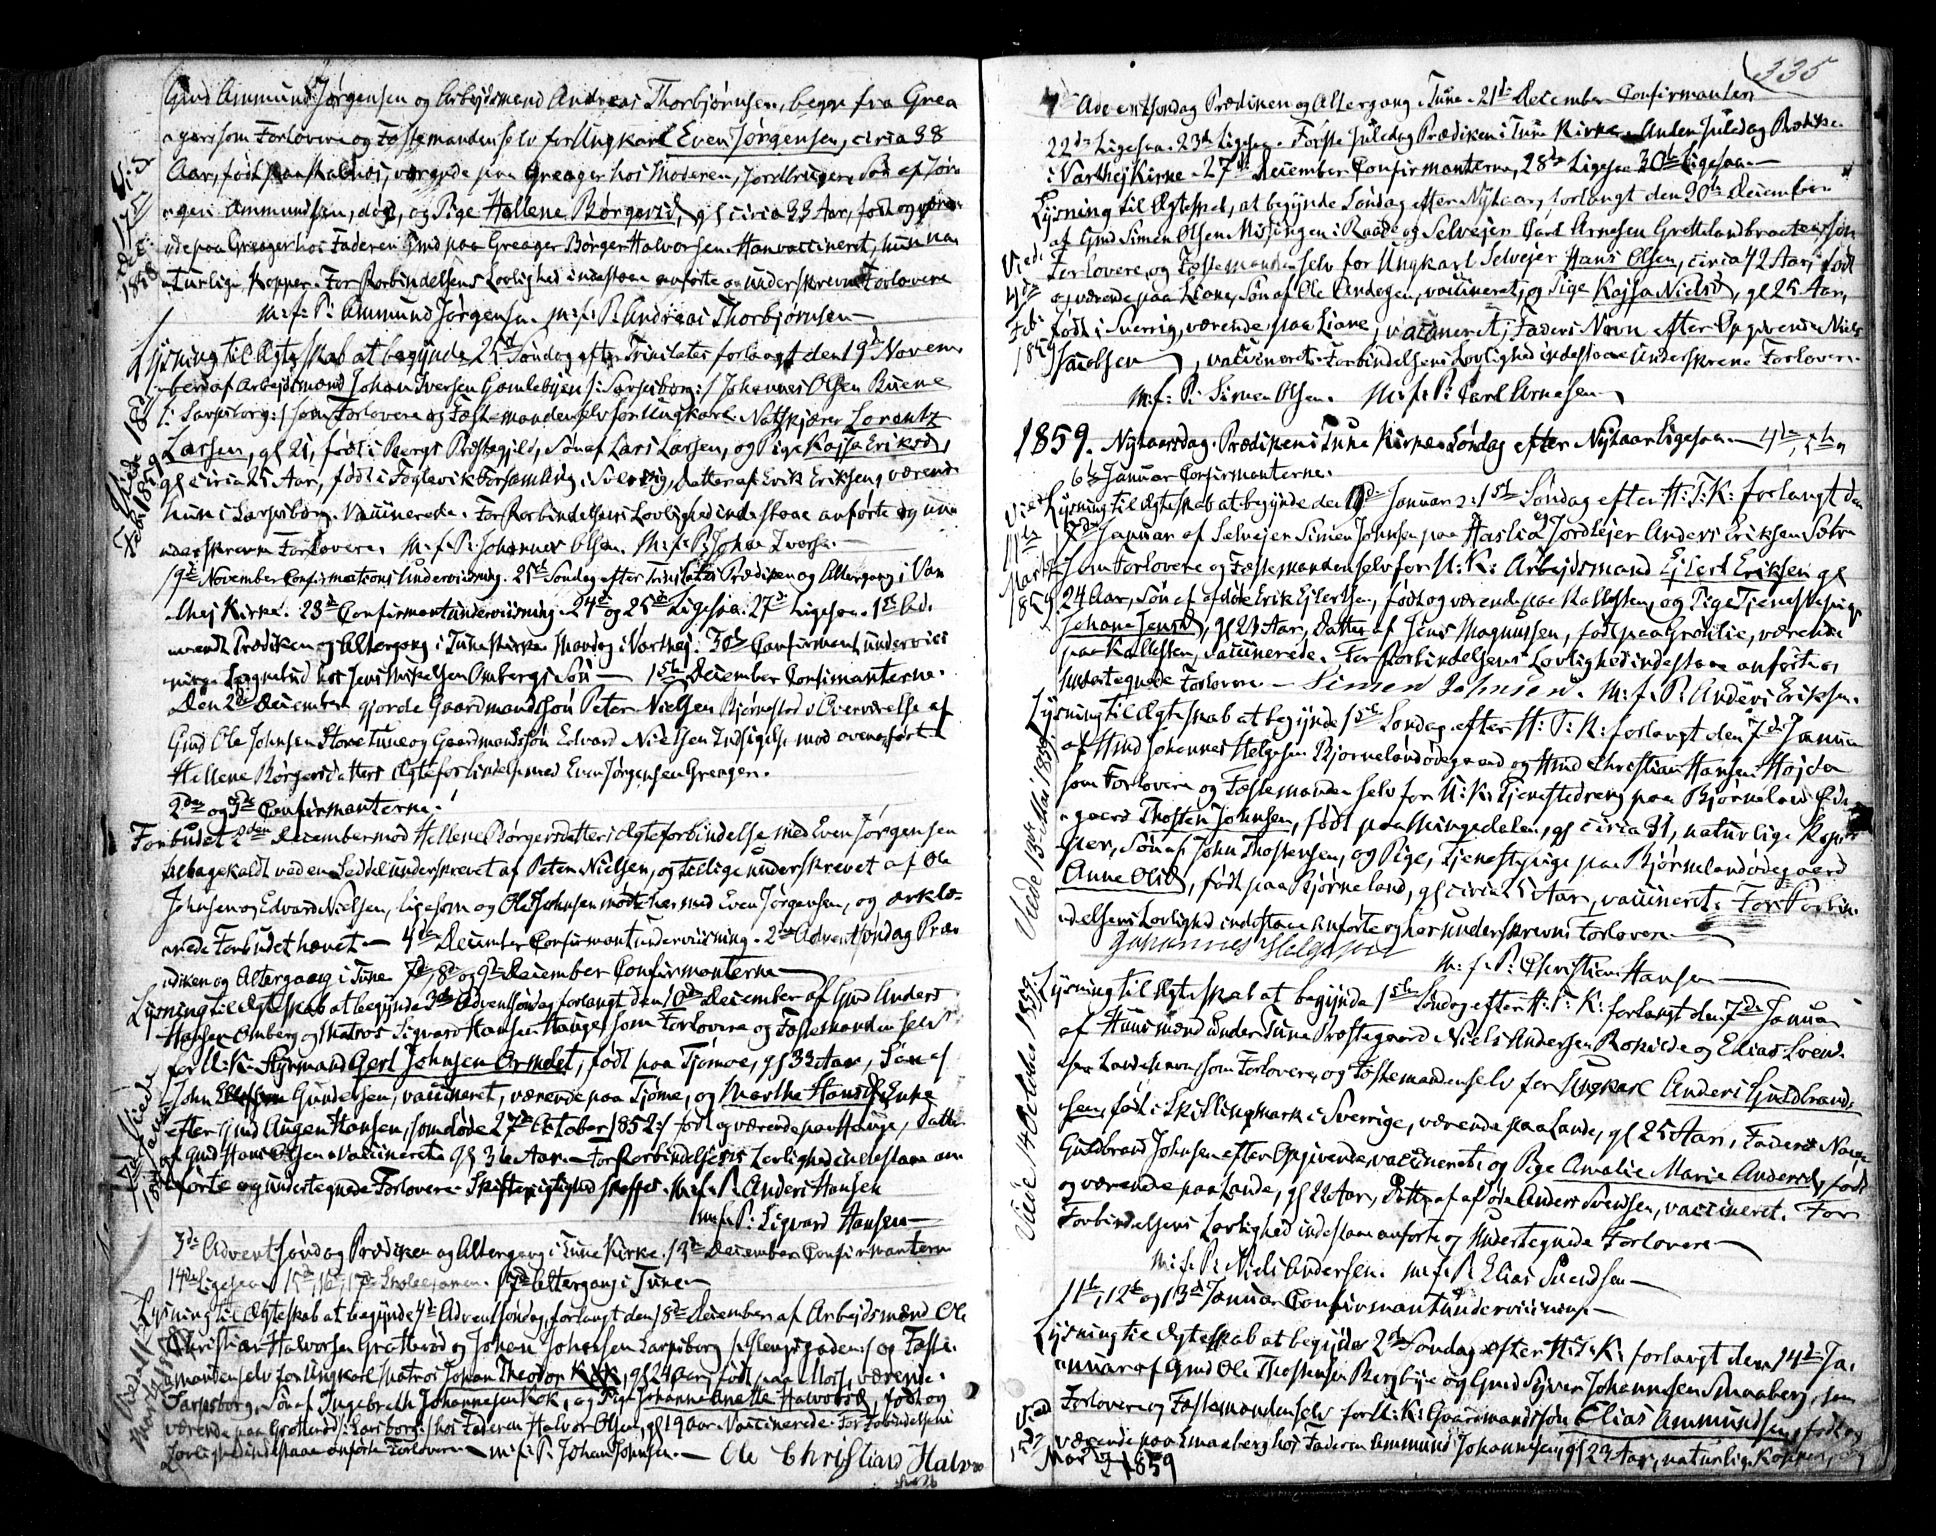 Gmd Ammund Jørgensen og Arbejdsmand Andreas Thorbjørnsen, begge fra Grea
ger som Forlovere og Fæstemanden selv for Ungkarl Even Jørgensen, circa 38
Aar, født paa værende paa Greager hos Moderen, Jordbruger, Søn af Jør
gen Ammundsen, død, og Pige Hellene Børgersd, gl circa 33 Aar, født og være
nde paa Greager hos Faderen Gmd paa Greager Børger Halvorsen. Han vaccineret, hun na
turlige Kopper. For Forbindelsens Lovlighed indestaae anførte og underskrevne Forlovere
M. f. P. Ammund Jørgensen. m. f. P. Andreas Thorbjørnsen
Lysning til Ægteskab at begynde 25d Søndag efter Trinitatis forlangt den 19d Novem
ber af Arbejdsmand Johan Iversen Gamlebyen /: Sarpsborg :/ Johannes Olsen
/: Sarpsborg :/ som Forlovere og Fæstemanden selv for Ungkarl Lorentz
Larsen, gl 21, født i Bergs Præstegjeld, Søn af Lars Larsen, og Pige Kajsa Eriksd,
gl circa 25 Aar, født i Foglevik Forsamling i Sverrig, Datter af Erik Eriksen, værende
hun i Sarpsborg. Vaccinerede. For Forbindelsens Lovlighed indestaae anførte og un
derskrevne Forlovere. M. f. P. Johannes Olsen. M. f. P. Johan Iversen.
19d November Confirmationsundervisning. 25d Søndag efter Trinitatis Prædiken og Altergang i Var
thej Kirke. 23d Confirmantundervisning. 24d og 25d Ligesaa. 27d Ligesaa. 1ste Ad.
vendt Prædiken og Altergang i Tune Kirke. Mandag i Varthej. 30d Confirmantundervis
ning. hos Jens Mikkelsen Ombergs Søn — 1ste December Confirmanterne.
Den 2de December gjorde Gaardmandssøn Peter Nielsen Bjørnstad i Overværelse af
Gmd Ole Johnsen Store Tune og Gaardmandssøn Edvard Nielsen Indsigelse mod ovenanført
Hellene Børgersdatters Ægteforbindelse med Even Jørgensen Greager.
2den og 3de Confirmanterne.
Forbudet 2den December mod Hellene Børgersdatters Ægteforbindelse med Even Jørgensen
tilbagekaldt ved en Seddel underskrevet af Peter Nielsen, og tillige underskrevet af Ole
Johnsen og Edvard Nielsen, ligesom og Ole Johnsen mødte her med Even Jørgensen, og erklæ
rede Forbudet hævet — 4de December Confirmantundervisning. 2den Adventsøndag Præ
diken og Altergang i Tune 7d, 8d og 9de December Confirmanterne
Lysning til Ægteskab at begynde 3de Adventsøndag forlangt den 10de December af Gmd Anders
Hansen Omberg og Matros Sigvard Hansen Hauge som Forlovere og Fæstemanden selv
for U. K. Styrmand Gert Johnsen Ormelet, født paa Tjømøe, gl 33 Aar, Søn af
John Gundersen, vaccineret, værende paa Tjøme, og Marthe Hansd Enke
efter Gmd Augen Hansen, som døde 27de October 1852 :/ født og værende paa Hauge, Datter
af Gmd Hans Olsen Vaccineret gl 36 Aar. For Forbindelsens Lovlighed indestaae an
førte og undertegnede Forlovere. Skifterigtighed skaffes. M. f. P. Anders Hansen
m. f. P: Sigvard Hansen
3de Advent søndag Prædiken og Altergang i Tune Kirke. 13d December Confirmanterne
14de Ligesaa 15d, 16d, 17de Skoleexamen. 17de Altergang i Tune
Lysning til Ægteskab at begynde 4de Adventsøndag, forlangt den 18de December af Arbejdsmænd Ole
Christian Halvorsen Grotterød og Johan Johnsen Sarpsborg og Fæste
manden selv for Ungkarl Matros Johan Theodor Kok, gl 24 Aar, født paa Moss, værende
Sarpsborg, Søn af Ingebreth Johannesen Kok, og Pige Johanne Anette Halvorsd, født og
værende paa Grotterød /: Sarpsborg :/ hos Faderen Halvor Olsen, gl 19 Aar. Vaccinerede. For Forbindelsens
Lovlighed indestaae anførte Forlovere m. f. P. Johan Johnsen. — Ole Christian Halvor
Viet 17d Dec: 1858
Viede 18d Feb: 1859
Viede Januar
335
4de Adventsøndag Prædiken og Altergang i Tune. 21de December Confirmanter
22de Ligesaa. 23de Ligesaa. Første Juledag Prædiken i Tune Kirke. Anden Juledag Prædike
i Varthej Kirke. 27de December Confirmanterne, 28de Ligesaa 30d Ligesaa
Lysning til Ægtestand, at begynde Søndag efter Nytaar, forlangt den 20de December
af Gmd Simen Olsen Missingen i Raade og Selvejer Carl Arnesen Gretlandbraaten som
Forlovere, og Fæstemanden selv for Ungkarl Selvejer Hans Olsen, circa 42 Aar, født
og værende paa Liane, Søn af Ole Andersen, vaccineret, og Pige Kajsa Nielsd, gl 25 Aar,
født i Sverrig, værende paa Liane, vaccineret, Faders Navn efter Opgivende Niels
Jacobsen, vaccineret. Forbindelsens Lovlighed indestaae underskrevne Forlovere.
M. f. P. Simen Olsen. M. f. P. Carl Arnesen
1859. Nytaarsdag. Prædiken i Tune Kirke Søndag efter Nytaar Ligesaa. 4de, 5te,
6te Januar Confirmanterne.
Lysning til Ægteskab at begynde den 9de Januar 2: 1ste Søndag efter H: T: K: forlangt den
7de Januar af Selvejer Simen Johnsen paa Haslia og Jordlejer Anders Eriksen
som Forlovere og Fæstemanden selv for U: K: Arbejdsmand Ejlert Eriksen gl
24 Aar, Søn af afdøde Erik Ejlertsen, født og værende paa Kallesten, og Pige Tjenestepige
Johane Jensd, gl 23 Aar, Datter af Jens Magnussen, født paa Grønlie, værende
paa Kallesten, vaccinerede. For Forbindelsens Lovlighed indestaae anførte og
undertegnede Forlovere — Simen Johnsen. M. f. P. Anders Eriksen.
Lysning til Ægteskab at begynde 1ste Søndag efter H: T: K: forlangt den 7de Janua
af Hmd Johannes Helgesen Bjørnelandødegaard og Hmd Christian Hansen Højden
som Forlovere og Fæstemanden selv for U: K: Tjenestedreng paa Bjørneland Øde
gaard Thosten Johnsen, født paa Mingedalen, gl circa 31, naturlige Kop
per, Søn af John Thostensen, og Pige, Tjenestepige paa Bjørnelandødegaard
Anne Olsd, født paa Bjørneland, gl circa 25 Aar, vaccineret. For Forbin
delsens Lovlighed indestaae anførte og her underskrevne Forlovere.
Johannes Helgesen
M. f. P. Christian Hansen
Lysning til Ægteskab at begynde 1ste Søndag efter H: T: K: forlangt den 7de Januar
af Huusmænd under Tune Præstegaard Niels Andersen Roskilde og Elias Svend
sen Landehavn, som Forlovere, og Fæstemanden selv for Ungkarl Anders Guldbrand
sen, født i Skillingmark i Sverrige, værende paa Lande, gl 25 Aar, Faders Navn
Guldbrand Johnsen efter Opgivende, vaccineret, og Pige Amalie Marie Andersd, født
og værende paa Lande, gl 22 Aar, Datter af afdøde Anders Svendsen, vaccineret. For
Forbindelsens Lovlighed indestaae anførte og Undertegnede Forlovere
M. f. P. Niels Andersen. M. f. P. Elias Svendsen
11te, 12te og 13de Januar Confirmantundervisning
Lysning til Ægteskab at begynde 2den Søndag efter H: T: K: forlangt den 14de Ja
nuar af Gmd Ole Thostensen Bergbye og Gmd Syver Johannesen Smaaberg, som
Forlovere og Fæstemanden selv for U: K: Gaardmandssøn Elias Ammundsen, født og
værende paa Smaaberg hos Faderen Ammund Johannesen, gl 23 Aar, naturlig. Kopper, og
Viede 4de Feb: 1859
Viet 11te Marts 1859
Viede 13de Mai 1859
Viede 14 October 1859
Viede Mar 1859